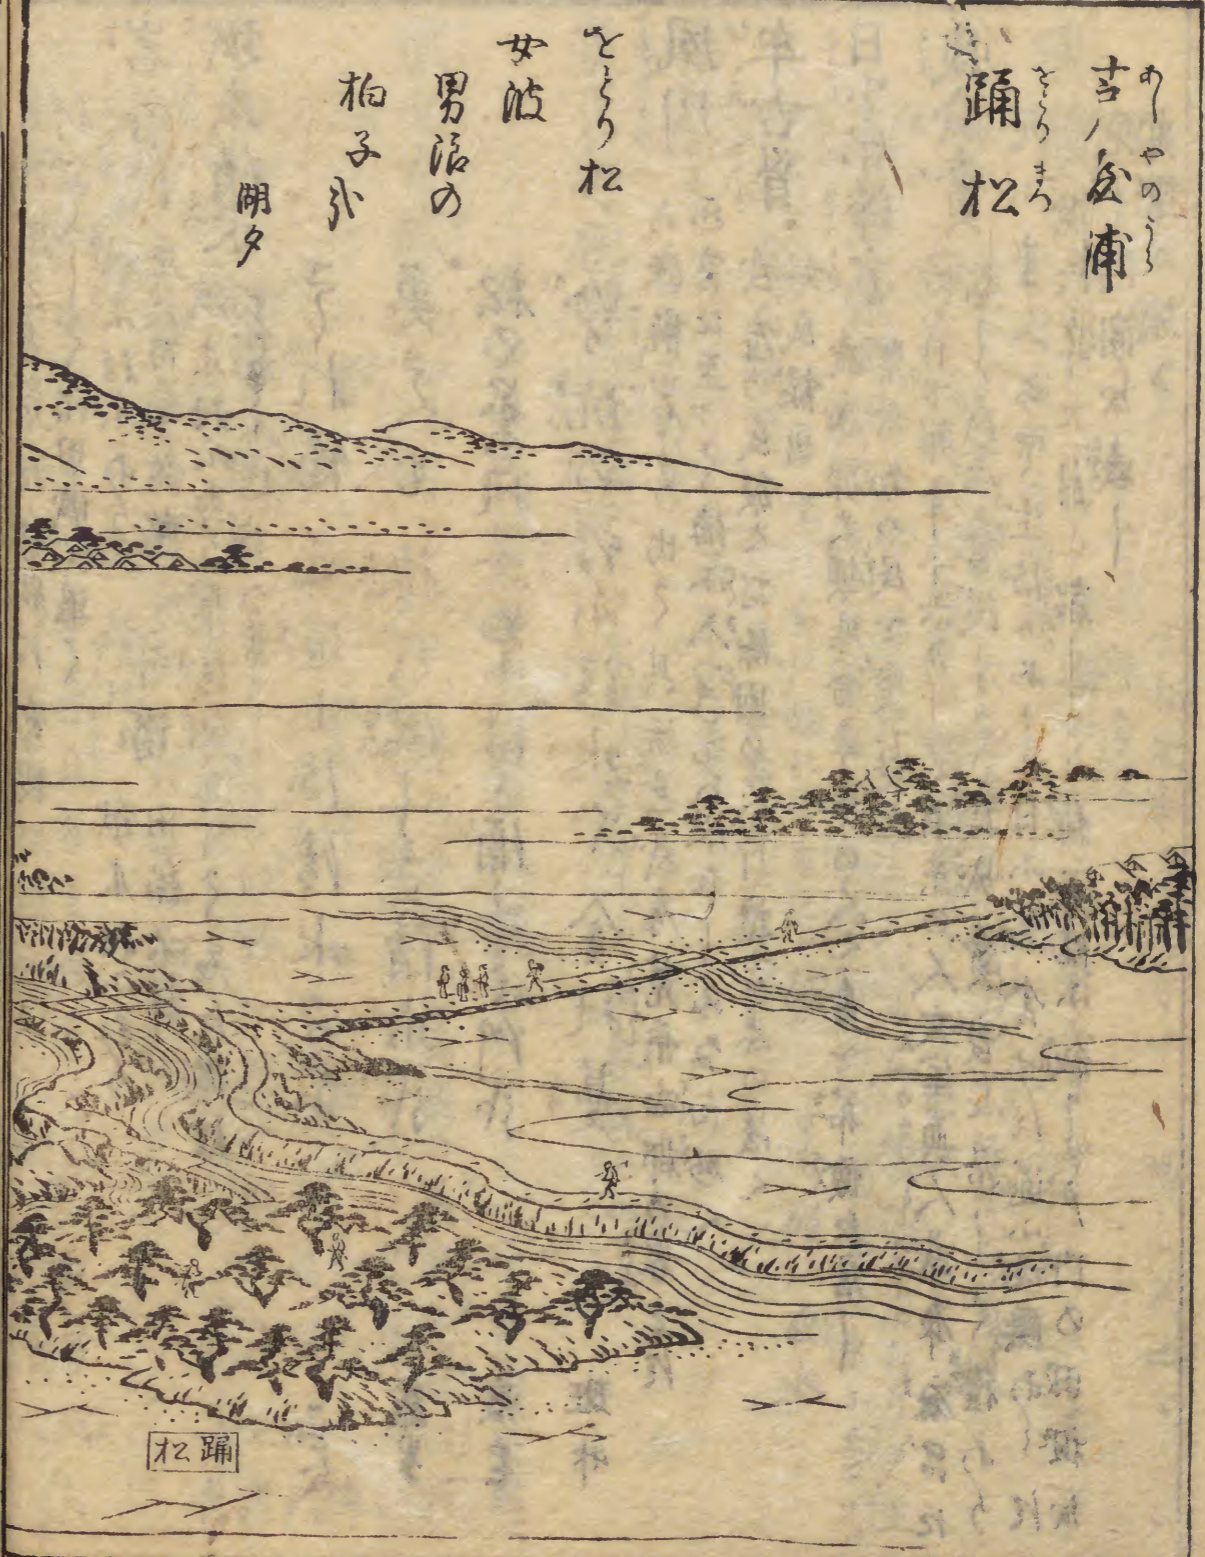 あしやのうら
吉ノ屋浦
をどりまつ
踊松
をとり松
女波
男浪の
拍子哉
蘭夕
踊松